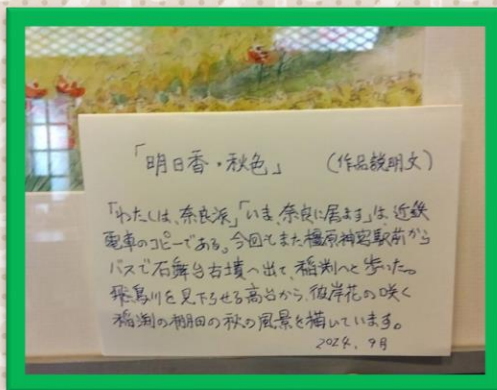 「明日香・秋色」 (作品説明文)
「わたしは、奈良派」「いま、奈良に居ます」は、近鉄
電車のコピーである。今回もまた橿原神宮駅前から
バスで石舞台古墳へ出て、稲渕へと歩いた。
飛鳥川を見下ろせる高台から、彼岸花の咲く
稲渕の棚田の秋の風景を描いています。
2024. 9月